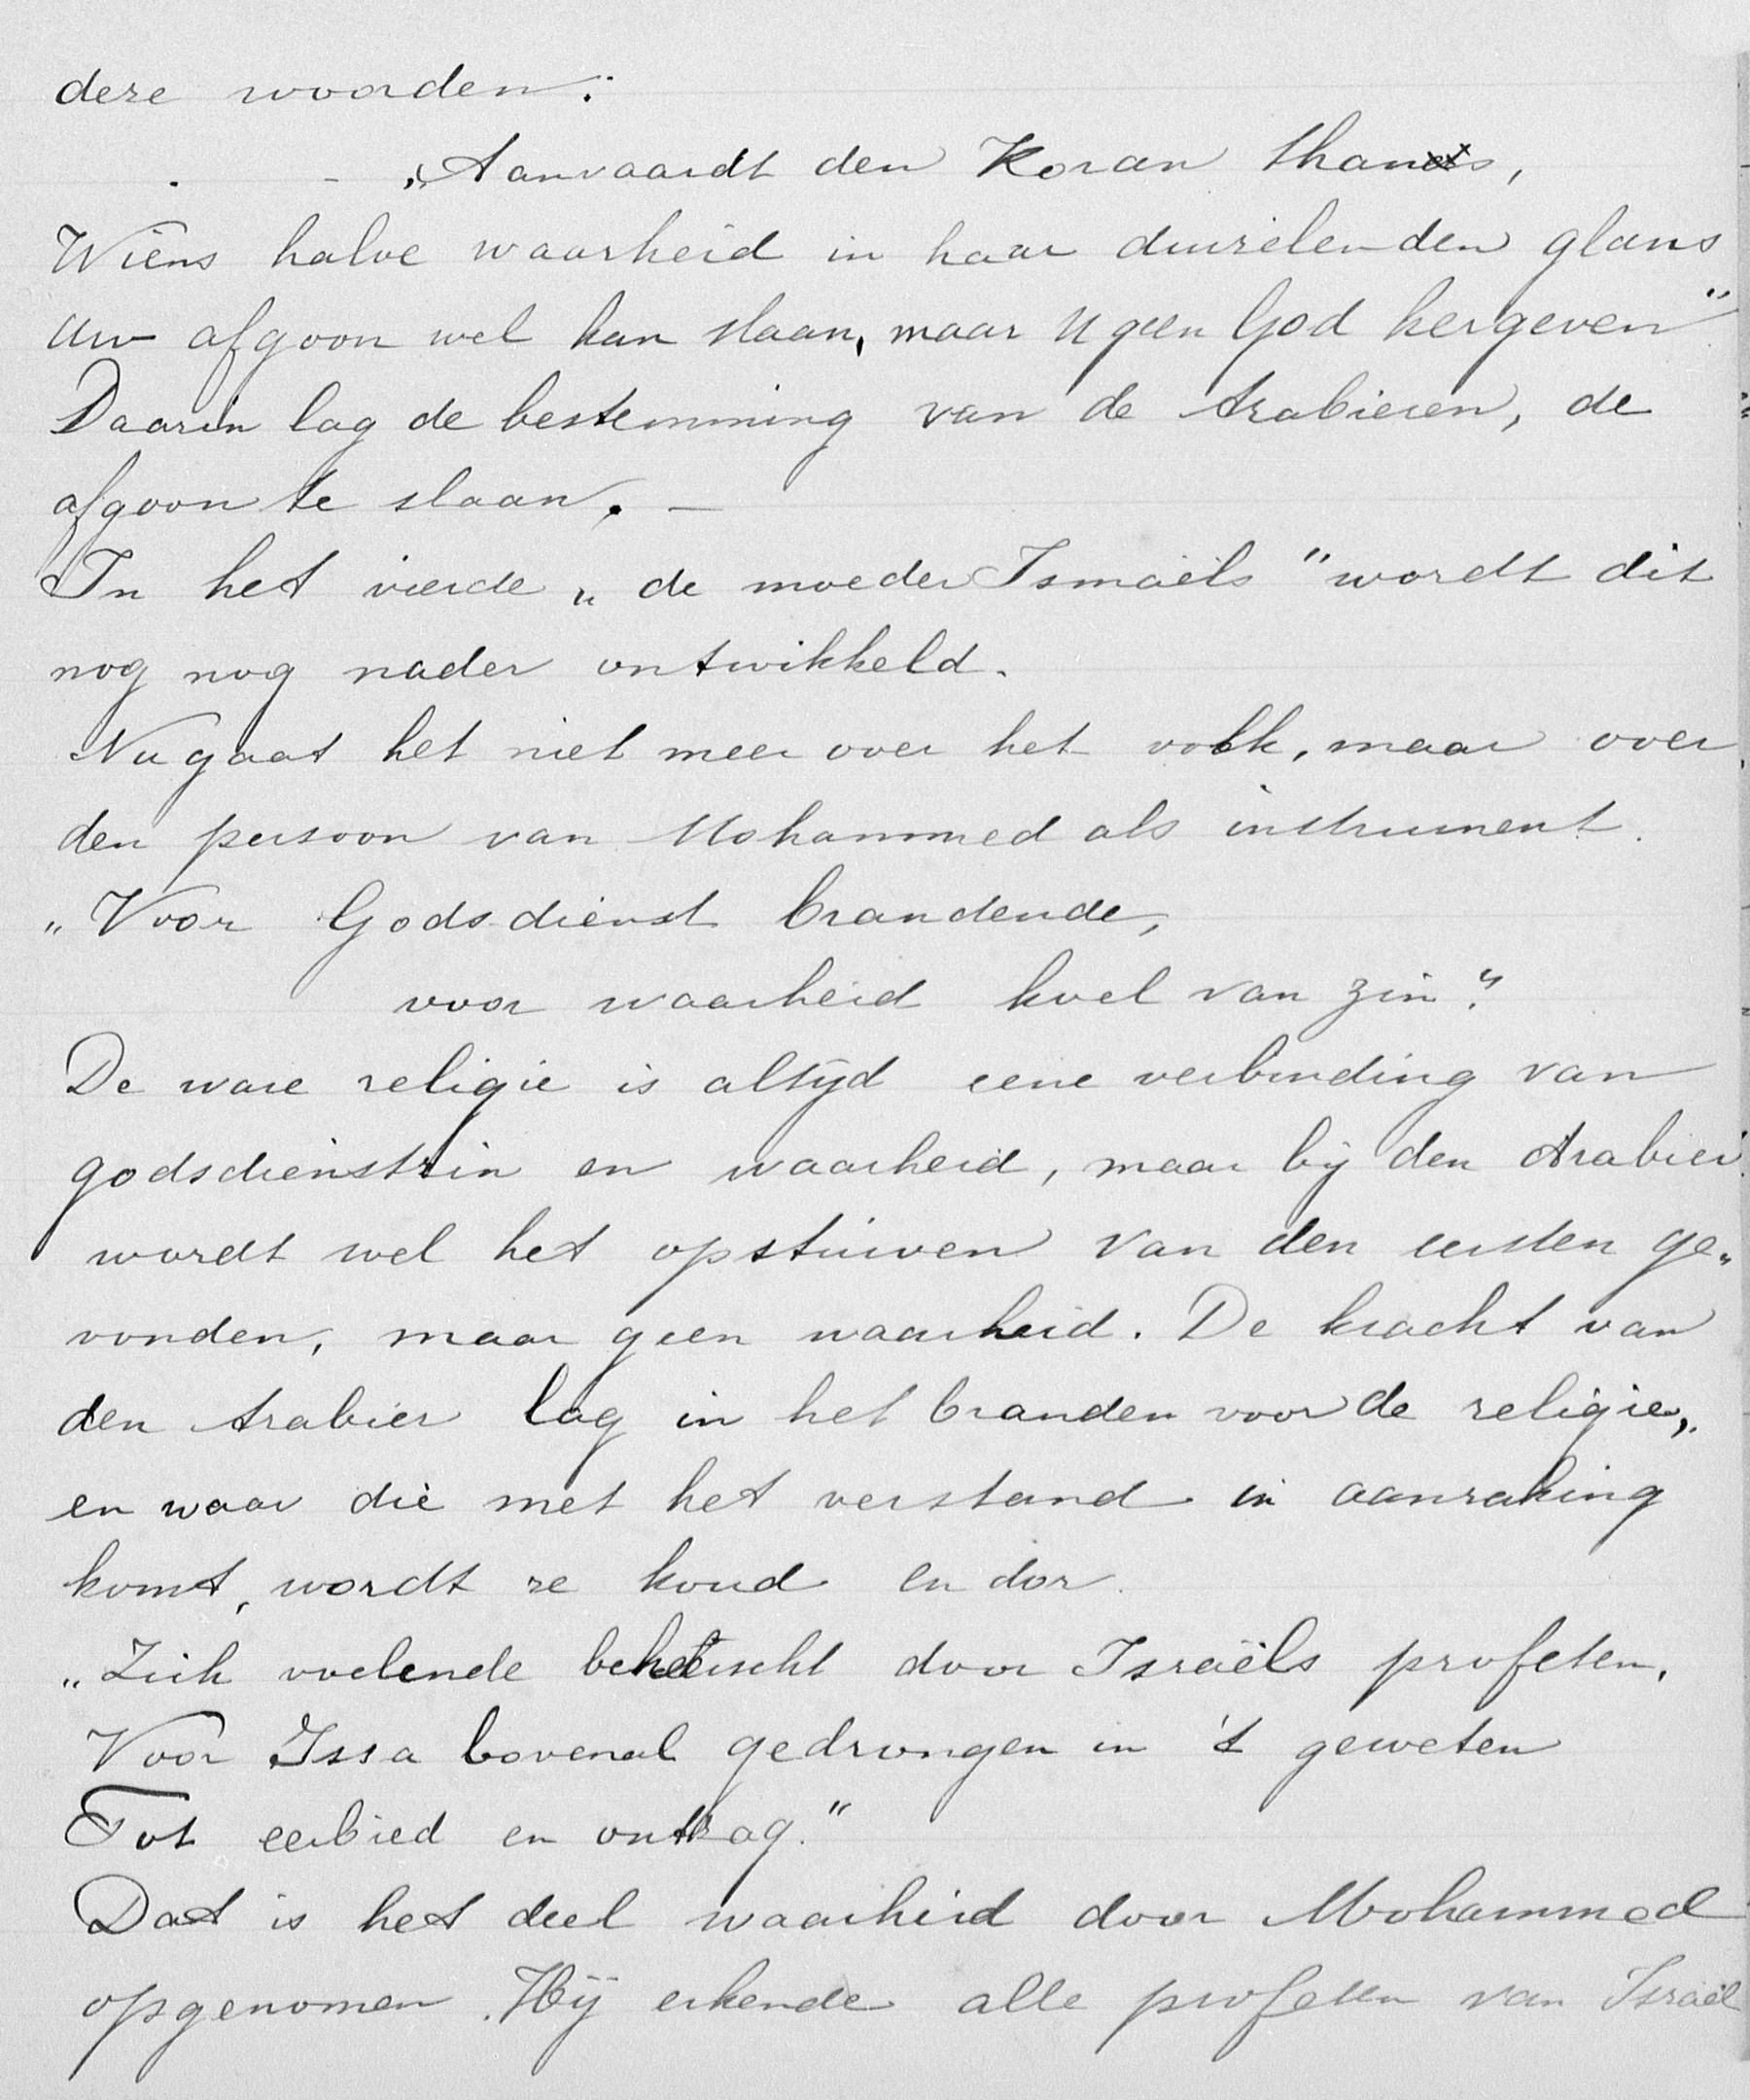 deze woorden:
„Aanvaardt den Koran thans,
Wiens halve waarheid in haar duizelenden glans
Uw afgoon wel kan slaan, maar U geen God hergeven"
Daarin lag de bestemming van de Arabieren, de
afgoon te slaan. —
In het vierde „de moeder Ismaëls" wordt dit
nog nog nader ontwikkeld.
Nu gaat het niet meer over het volk, maar over
den persoon van Mohammed als instrument.
„Voor Godsdienst brandende,
voor waarheid koel van zin".
De ware religie is altijd eene verbinding van
godsdienstzin en waarheid, maar bij den Arabier
wordt wel het opstuiven van den eersten ge„
vonden, maar geen waarheid. De kracht van
den Arabier lag in het branden voor de religie,
en waar die met het verstand in aanraking
komt, wordt ze koud en dor.
„Zich voelende beheerscht door Israëls profeten,
Voor Issa bovenal gedrongen in 't geweten
Tot eerbied en ontzag."
Dat is het deel waarheid door Mohammed
opgenomen. Hij erkende alle profeten van Israël